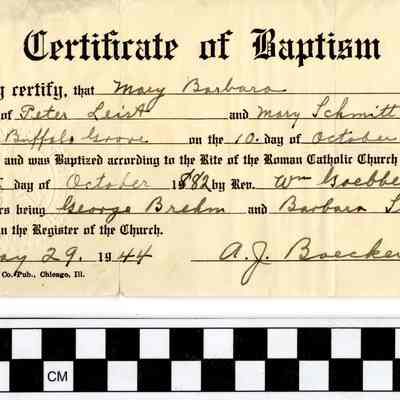 Certificate of Baptism
y certify, that Mary Barbara
of Peter Leist and Mary Schmitt
Buffalo Grove on the 10. day of October
and was Baptized according to the Rite of the Roman Catholic Church
day of October 1882 by Rev. Wm Goebbe
rs being George Brehm and Barbara
n the Register of the Church.
ay 29. 1944 A.J. Boecker
Co. Pub., Chicago, Ill.
CM